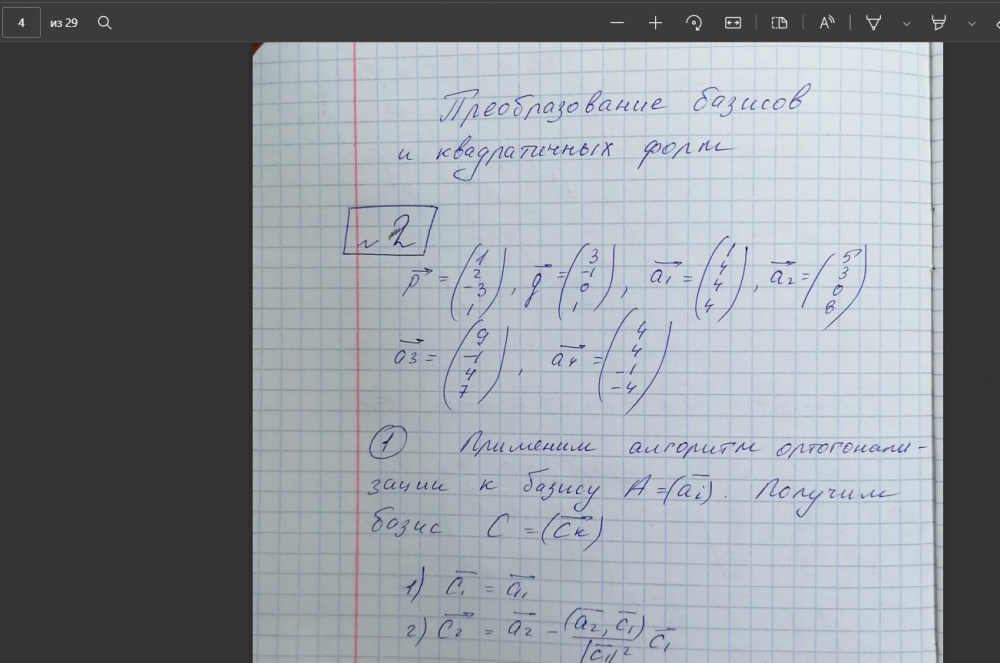 4 из 29
Преобразование базисов
и квадратичных форм
№2
p⃗ = (1 2 -3 1), q⃗ = (3 -1 0 1), a₁⃗ = (1 4 4 4), a₂⃗ = (5 3 0 8)
a₃⃗ = (9 -1 4 7), a₄⃗ = (4 4 -1 -4)
① Применим алгоритм ортогонали-
зации к базису A = (a̅i). Получим
базис C = (c̅к)
1) c̅₁ = a̅₁
2) c₂⃗ = a̅₂ - (a̅₂, c̅₁)/|c̅₁|² c̅₁